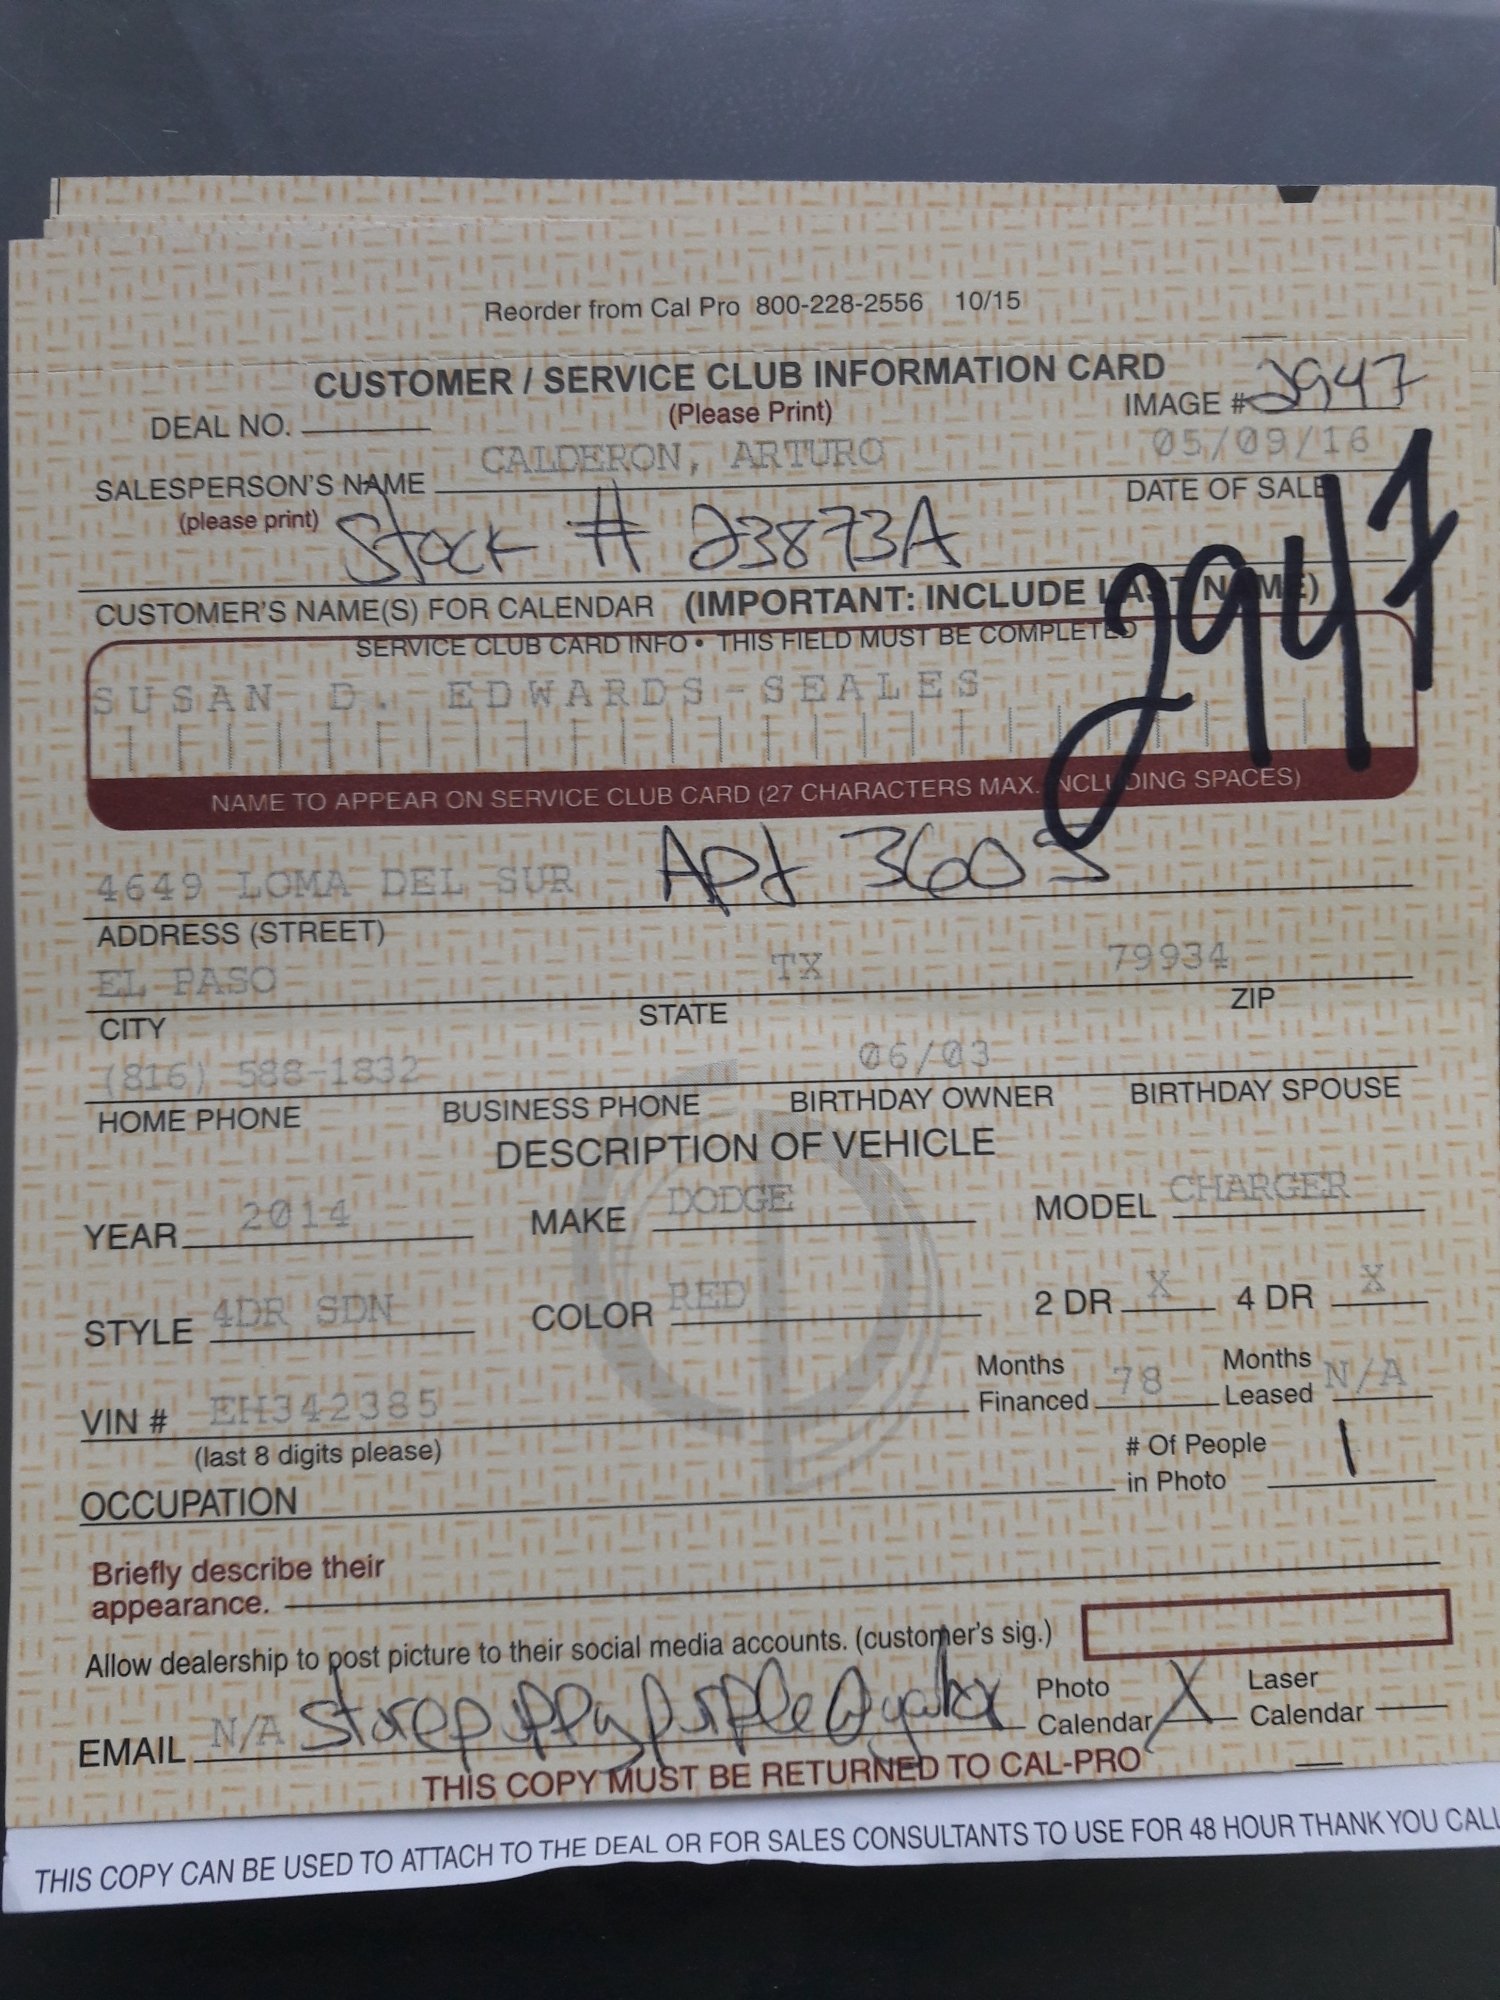 Reorder from Cal Pro 800-228-2556 10/15
CUSTOMER / SERVICE CLUB INFORMATION CARD
DEAL NO. (Please Print) IMAGE # 2947
CALDERON, ARTURO 05/09/16
SALESPERSON'S NAME DATE OF SALE
(please print)
Stock # 23873A
2947
CUSTOMER'S NAME(S) FOR CALENDAR (IMPORTANT: INCLUDE LAST NAME)
SERVICE CLUB CARD INFO • THIS FIELD MUST BE COMPLETED
SUSAN D. EDWARDS-SEALES
NAME TO APPEAR ON SERVICE CLUB CARD (27 CHARACTERS MAX. INCLUDING SPACES)
4649 LOMA DEL SUR Apt
ADDRESS (STREET)
EL PASO TX 79934
CITY STATE ZIP
(816) 588-1832 06/03
HOME PHONE BUSINESS PHONE BIRTHDAY OWNER BIRTHDAY SPOUSE
DESCRIPTION OF VEHICLE
YEAR 2014 MAKE DODGE MODEL CHARGER
STYLE 4DR SDN COLOR RED 2 DR X 4 DR X
VIN # EH342385 Months Financed 78 Months Leased N/A
(last 8 digits please)
OCCUPATION # Of People in Photo 1
Briefly describe their
appearance.
Allow dealership to post picture to their social media accounts. (customer's sig.)
EMAIL N/A Photo Calendar X Laser Calendar
THIS COPY MUST BE RETURNED TO CAL-PRO
THIS COPY CAN BE USED TO ATTACH TO THE DEAL OR FOR SALES CONSULTANTS TO USE FOR 48 HOUR THANK YOU CALL